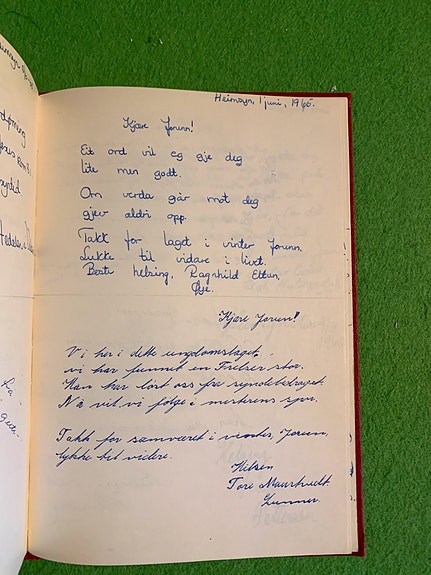 Heimsyn, 1 juni, 1965.
Kjære Jorunn!
Eit ord vil eg gje deg
lite men godt.
Om verda går mot deg
gjev aldri opp.
Takk for laget i vinter Jorunn.
Lukke til vidare i livet.
Beste helsing, Ragnhild
Øye.
Kjære Jorun!
Vi her i dette ungdomslaget,
vi har funnet en Frelser stor.
Han har løst oss fra syndebedraget.
Nå vil vi følge i mesterens spor.
Takk for samværet i vinter, Jorun,
lykke til videre.
Hilsen
Tore
Lunner.